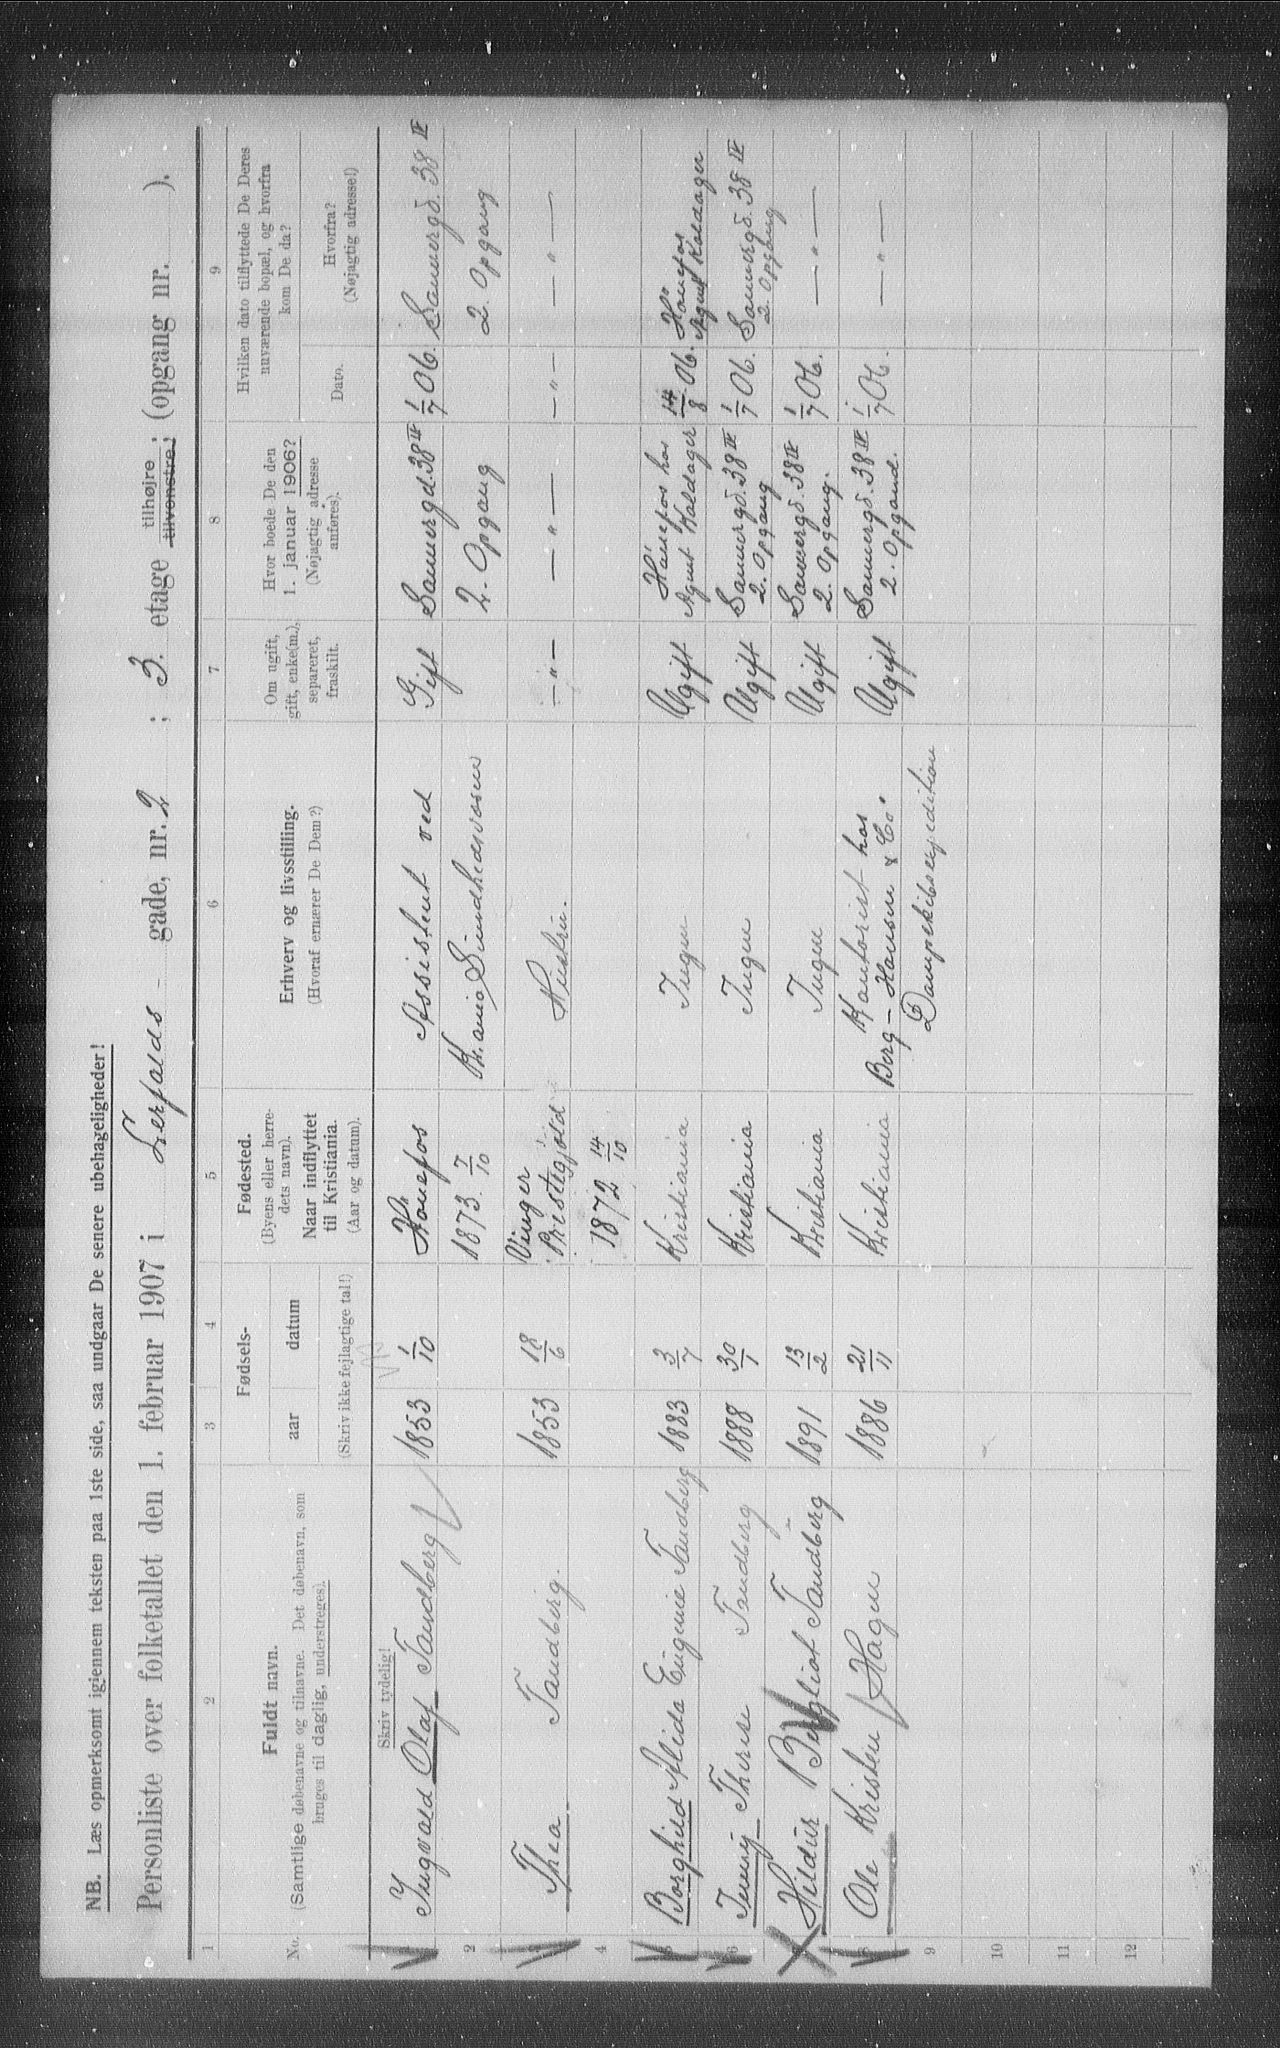 NB. Læs opmerksomt igjennem teksten paa 1ste side, saa undgaar De senere ubehageligheder!
Personliste over folketallet den 1. februar 1907 i Lerfalds - gade, nr. 2 ; 3. etage tilhøjre ; tilvenstre; (opgang nr. ).
1 2 3 4 5 6 7 8 9
No.
Fuldt navn.
(Samtlige døbenavne og tilnavne. Det døbenavn, som
bruges til daglig, understreges).
Fødsels-
aar datum
(Skriv ikke fejlagtige tal!)
Fødested.
(Byens eller herre-
dets navn).
Naar indflyttet
til Kristiania.
(Aar og datum).
Erhverv og livsstilling.
(Hvoraf ernærer De Dem?)
Om ugift,
gift, enke(m.),
separeret,
fraskilt.
Hvor boede De den
1. januar 1906?
(Nøjagtig adresse
anføres).
Hvilken dato tilflyttede De Deres
nuværende bopæl, og hvorfra
kom De da?
Dato.
Hvorfra?
(Nøjagtig adresse!)
Skriv tydelig!
Ingvald Olaf Tandberg 1853 1/10 Hönefos Assistent ved Gift Sannergd. 38 IV 1/7 06. Sannergd. 38 IV
2 1873 7/10 Kr.ania Sundhedsvæsen 2. Opgang 2. Opgang
Thea Tandberg. 1853 18/6 Vinger Præstegjæld Hustru. — " — — " — — " — — " —
4 1872 14/10
Borghild Alida Eugenie Tandberg 1883 3/7 Kristiania Ingen Ugift Hönefos hos Agent Koldager 14/8 06. Hönefos Agent Koldager
6 Jenny Therese Tandberg 1888 30/1 Kristiania Ingen Ugift Sannergd. 38 IV 2. Opgang 1/7 06. Sannergd. 38 IV 2. Opgang
Hildur Bergliot Tandberg 1891 13/2 Kristiania Ingen Ugift Sannergd. 38 IV 2. Opgang. 1/7 06. — " —
8 Ole Kristen Hagen 1886 21/11 Kristiania Kontorist hos Berg-Hansen & Co. Ugift Sannergd. 38 IV 2. Opgand. 1/7 06. — " —
9 Dampskibsexpedition
10
11
12